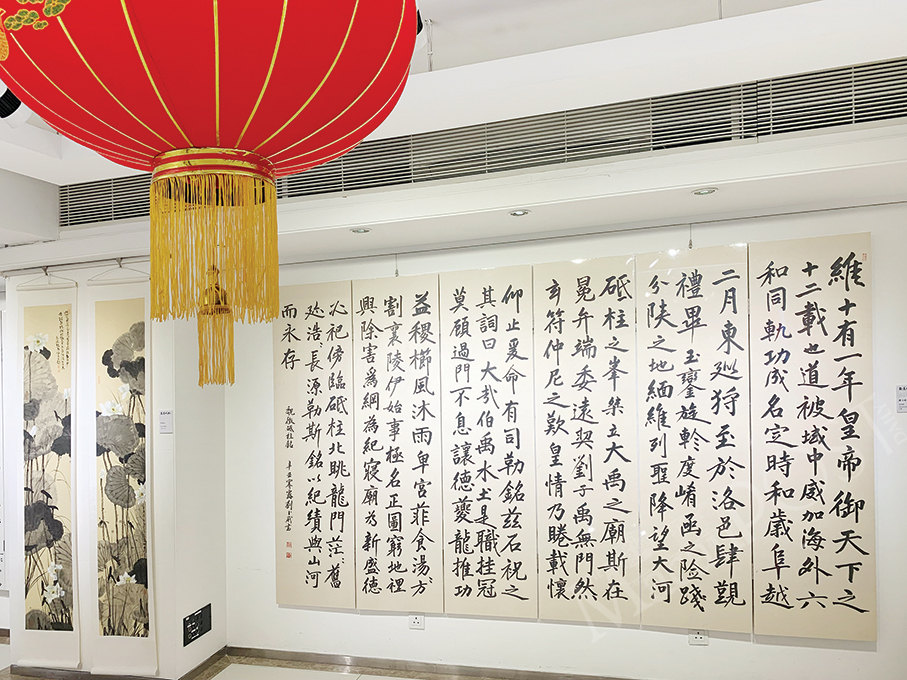 維十有一年皇帝御天下之
十二載也道被域中威加海外六
和同軌功成名定時和歲阜越
二月東巡狩至於洛邑肆觀
禮畢玉鑾旋軫度崤函之险踐
分陕之地緬維列聖降望大河
砥柱之峯桀立大禹之廟斯在
冕弁端委遠契劉子禹無門然
玄符仲尼之歎皇情乃睠載懷
仰止爰命有司勒銘兹石祝之
其詞曰大哉伯禹水土是職挂冠
莫顧過門不息讓德夔龍推功
益稷櫛風沐雨卑宮菲食湯方
割襄陵伊始事極名正圖窮地裡
興除害爲綱為紀寢廟为新盛德
必祀傍臨砥柱北眺龍門茫〻舊
迹浩長源勒斯銘以紀績與山河
而永存
魏徵砥柱銘 辛丑寒露劉書